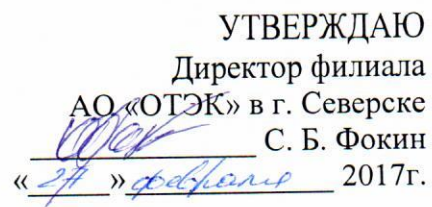 УТВЕРЖДАЮ
Директор филиала
АО «ОТЭК» в г. Северске
С. Б. Фокин
«27» февраля 2017г.